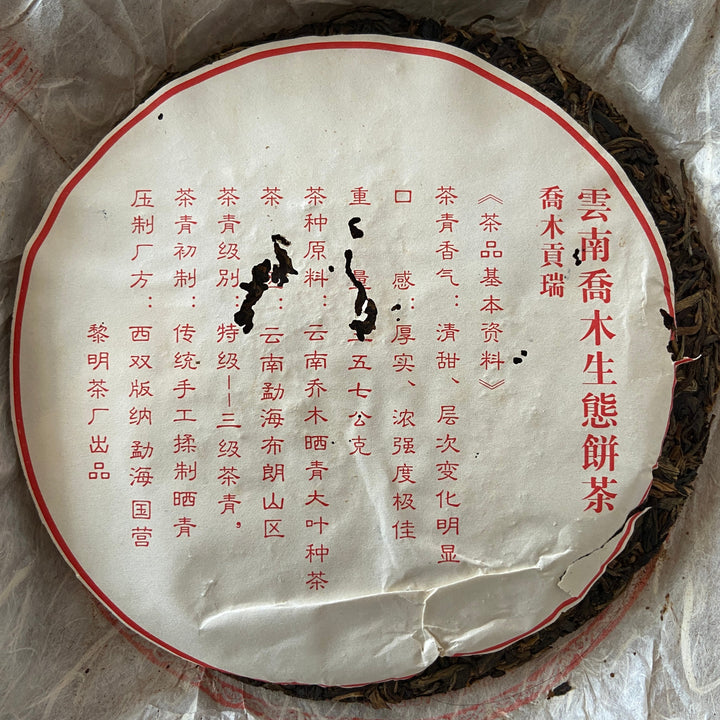 雲南喬木生態餅茶
喬木貢瑞
《茶品基本资料》
茶青香气：清甜、层次变化明显
口感：厚实、浓强度极佳
重量：五七公克
茶种原料：云南乔木晒青大叶种茶
茶：云南勐海布朗山区
茶青级別：特级--三级茶青，
茶青初制：传统手工揉制晒青
压制厂方：西双版纳勐海国营
黎明茶厂出品